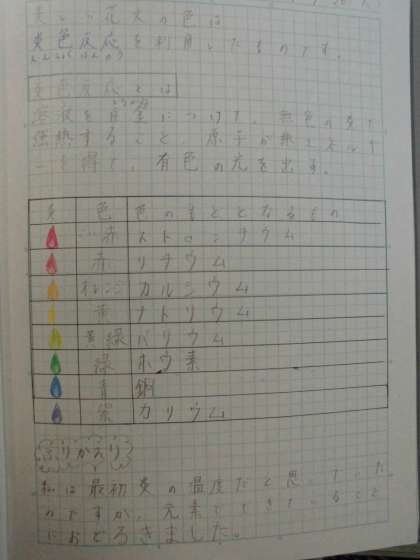 炎や花火の色は
炎色反応を利用したものです。
えんしょくはんのう
炎色反応とは
はっきん
溶液を白金につけて、無色の炎で
強熱すること 原子が熱エネルギ
ーを得て、有色の光を出す。
炎 色 色のもととなるもの
赤 ストロンチウム
赤 リチウム
オレンジ カルシウム
黄 ナトリウム
黄緑 バリウム
緑 ホウ素
青 銅
紫 カリウム
ふりかえり
私は最初炎の温度だと思っていた
のですが、元素でできていること
におどろきました。